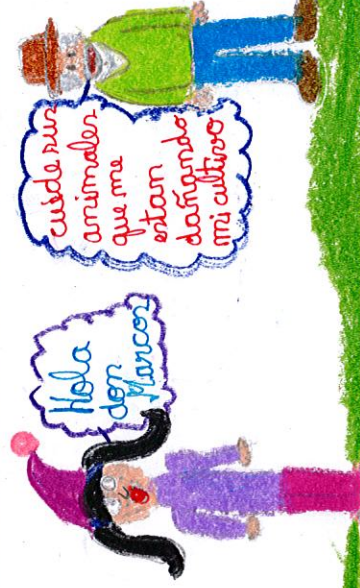 Hola
don
Marcos
cuide sus
animales
que me
estan
dañando
mi cultivo